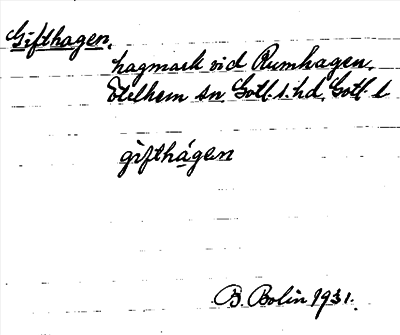 Gifthagen,
hagmark vid Rumhagen.
Etelhem sn. Gotl. s. hd, Gotl. l.
gìfthágen
B. Bolin 1931.